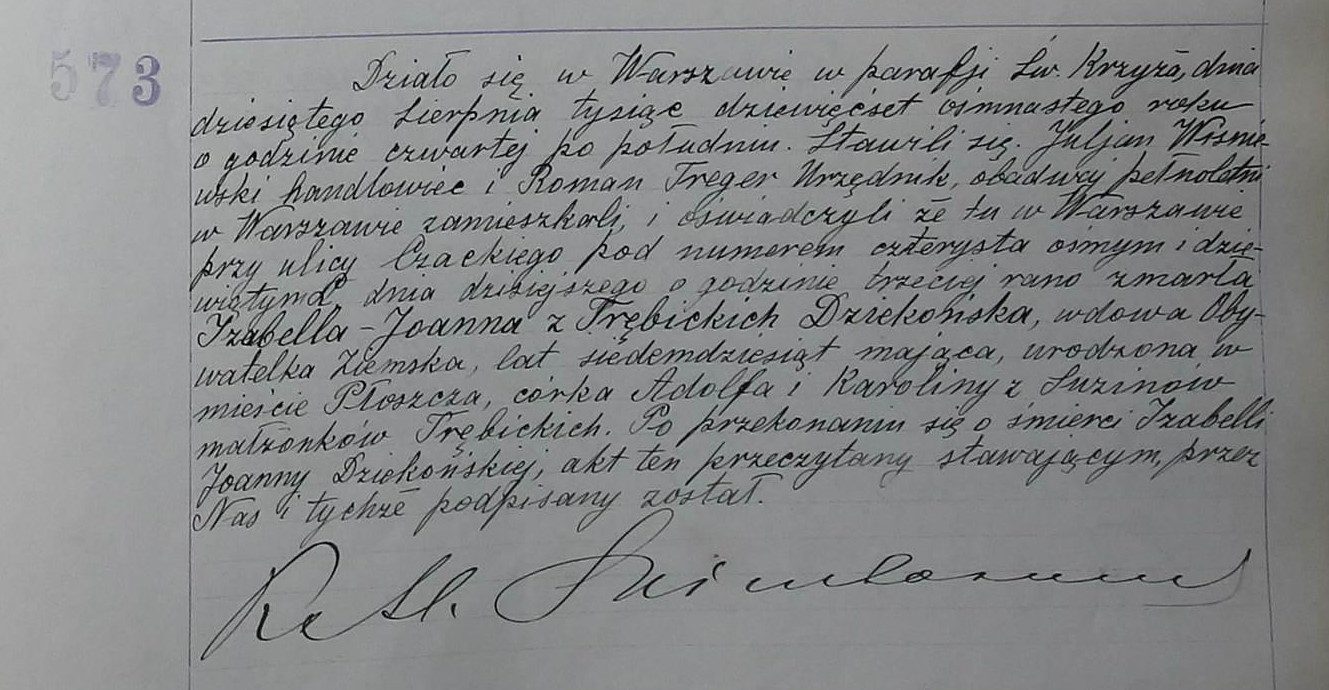 573
Działo się w Warszawie w parafji Św. Krzyża, dnia
dziesiątego Sierpnia tysiąc dziewięćset ósmnastego roku
o godzinie czwartej po południu. Stawili się. Juljan Wiśnie-
wski handlowiec i Roman Treger Urzędnik, obadwaj pełnoletni
w Warszawie zamieszkali, i oświadczyli że tu w Warszawie
przy ulicy Czackiego pod numerem czterysta ósmym i dzie-
wiątym dnia dzisiejszego o godzinie trzeciej rano zmarła
Izabella-Joanna z Trębickich Dziekońska, wdowa Oby-
watelka Ziemska, lat siedemdziesiąt mająca, urodzona w
mieście Płoszcza, córka Adolfa i Karoliny z Suzinów
małżonków Trębickich. Po przekonaniu się o śmierci Izabelli
Joanny Dziekońskiej, akt ten przeczytany stawającym, przez
Nas i tychże podpisany został.